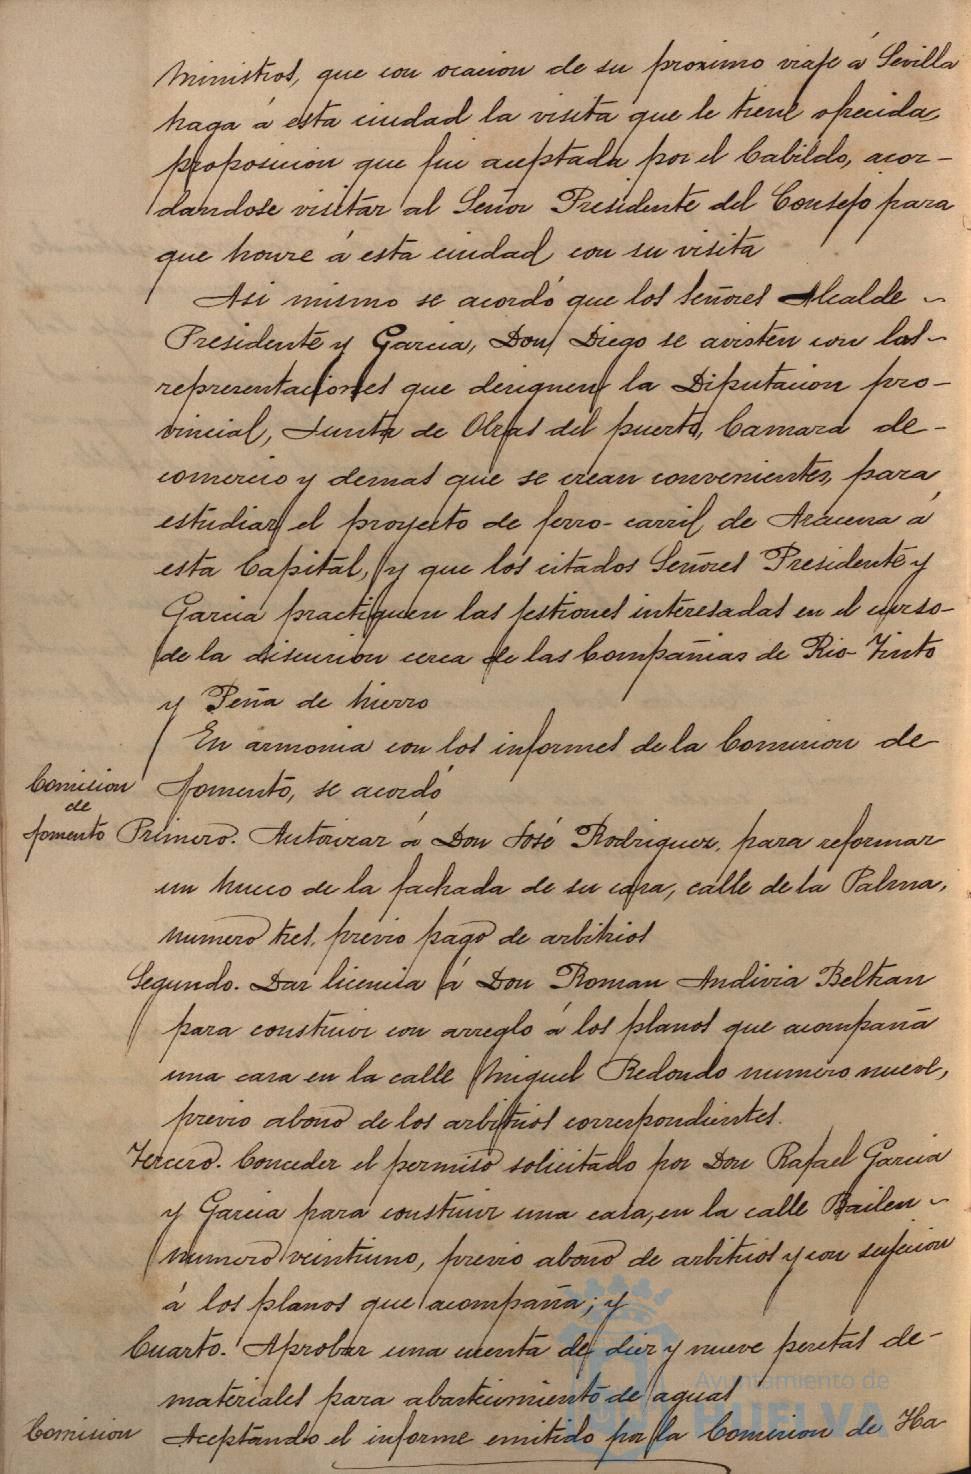 Ministros, que con ocacion de su proximo viaje á Sevilla
haga á esta ciudad la visita que le tiene ofrecida,
proposicion que fué aceptada por el Cabildo, acor-
dandose visitar al Señor Presidente del Consejo para
que honre á esta ciudad con su visita
Asi mismo se acordó que los Señores Alcalde
Presidente y Garcia, Don Diego se avisten con las
representaciones que designen la Diputacion pro-
vincial, Junta de Obras del puerto, Camara de-
comercio y demas que se crean convenientes, para
estudiar el proyecto de ferro-carril de Aracena á
esta Capital, y que los citados Señores Presidente y
Garcia practiquen las gestiones interesadas en el curso-
de la discusion cerca de las Compañias de Rio-Tinto
y Peña de hierro
En armonia con los informes de la Comision de
Comision
de
fomento
fomento, se acordó
Primero. Autorizar á Don José Rodriguez, para reformar
un hueco de la fachada de su casa, calle de la Palma,
numero tres, previo pago de arbitrios
Segundo. Dar licencia á Don Roman Andivia Beltran
para construir con arreglo á los planos que acompaña
una casa en la calle Miguel Redondo numero nueve,
previo abono de los arbitrios correspondientes.
Tercero. Conceder el permiso solicitado por Don Rafael Garcia
y Garcia para construir una casa, en la calle Bailen
numero veintiuno, previo abono de arbitrios y con sujecion
á los planos que acompaña; y
Cuarto. Aprobar una cuenta de diez y nueve pesetas de-
materiales para abastecimiento de aguas
Comision
Aceptando el informe emitido por la Comision de Ha-
Ayuntamiento de
HUELVA